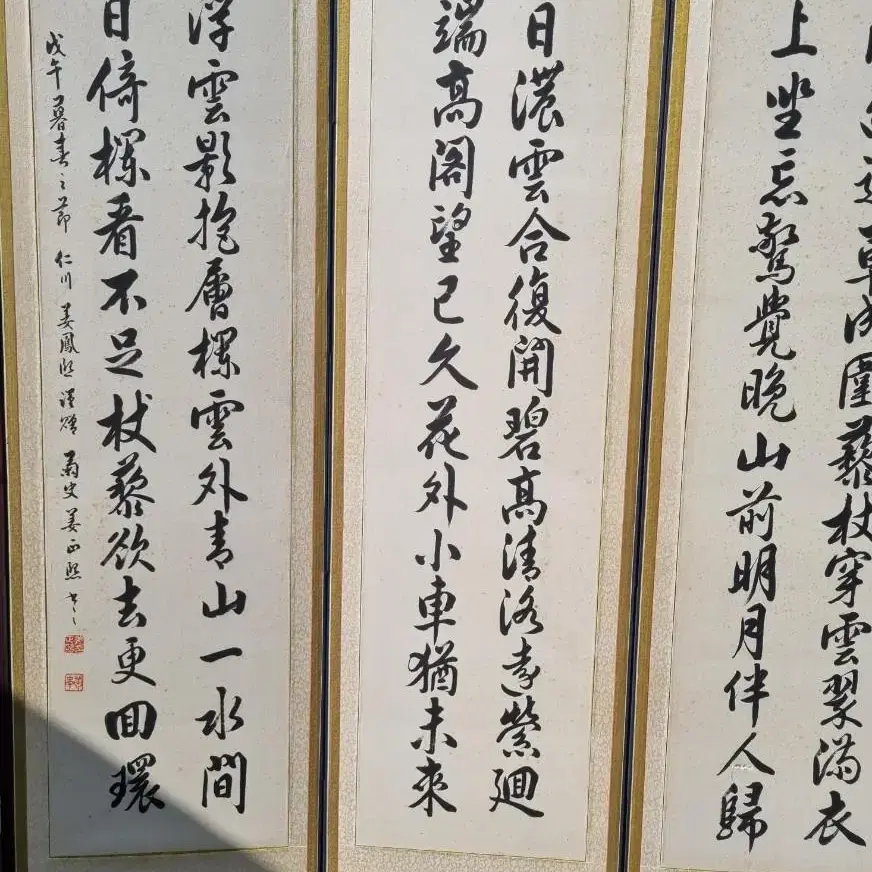 草成圍藜杖穿雲翠滿衣
上坐忘驚覺晚山前明月伴人歸
日濃雲合復開碧高清洛遠縈廻
端高閣望已久花外小車猶未來
浮雲影抱層欄雲外青山一水間
日倚欄看不足杖藜欲去更回環
戊午暮春之節 仁川 姜鳳熙 謹贈 姜正熙